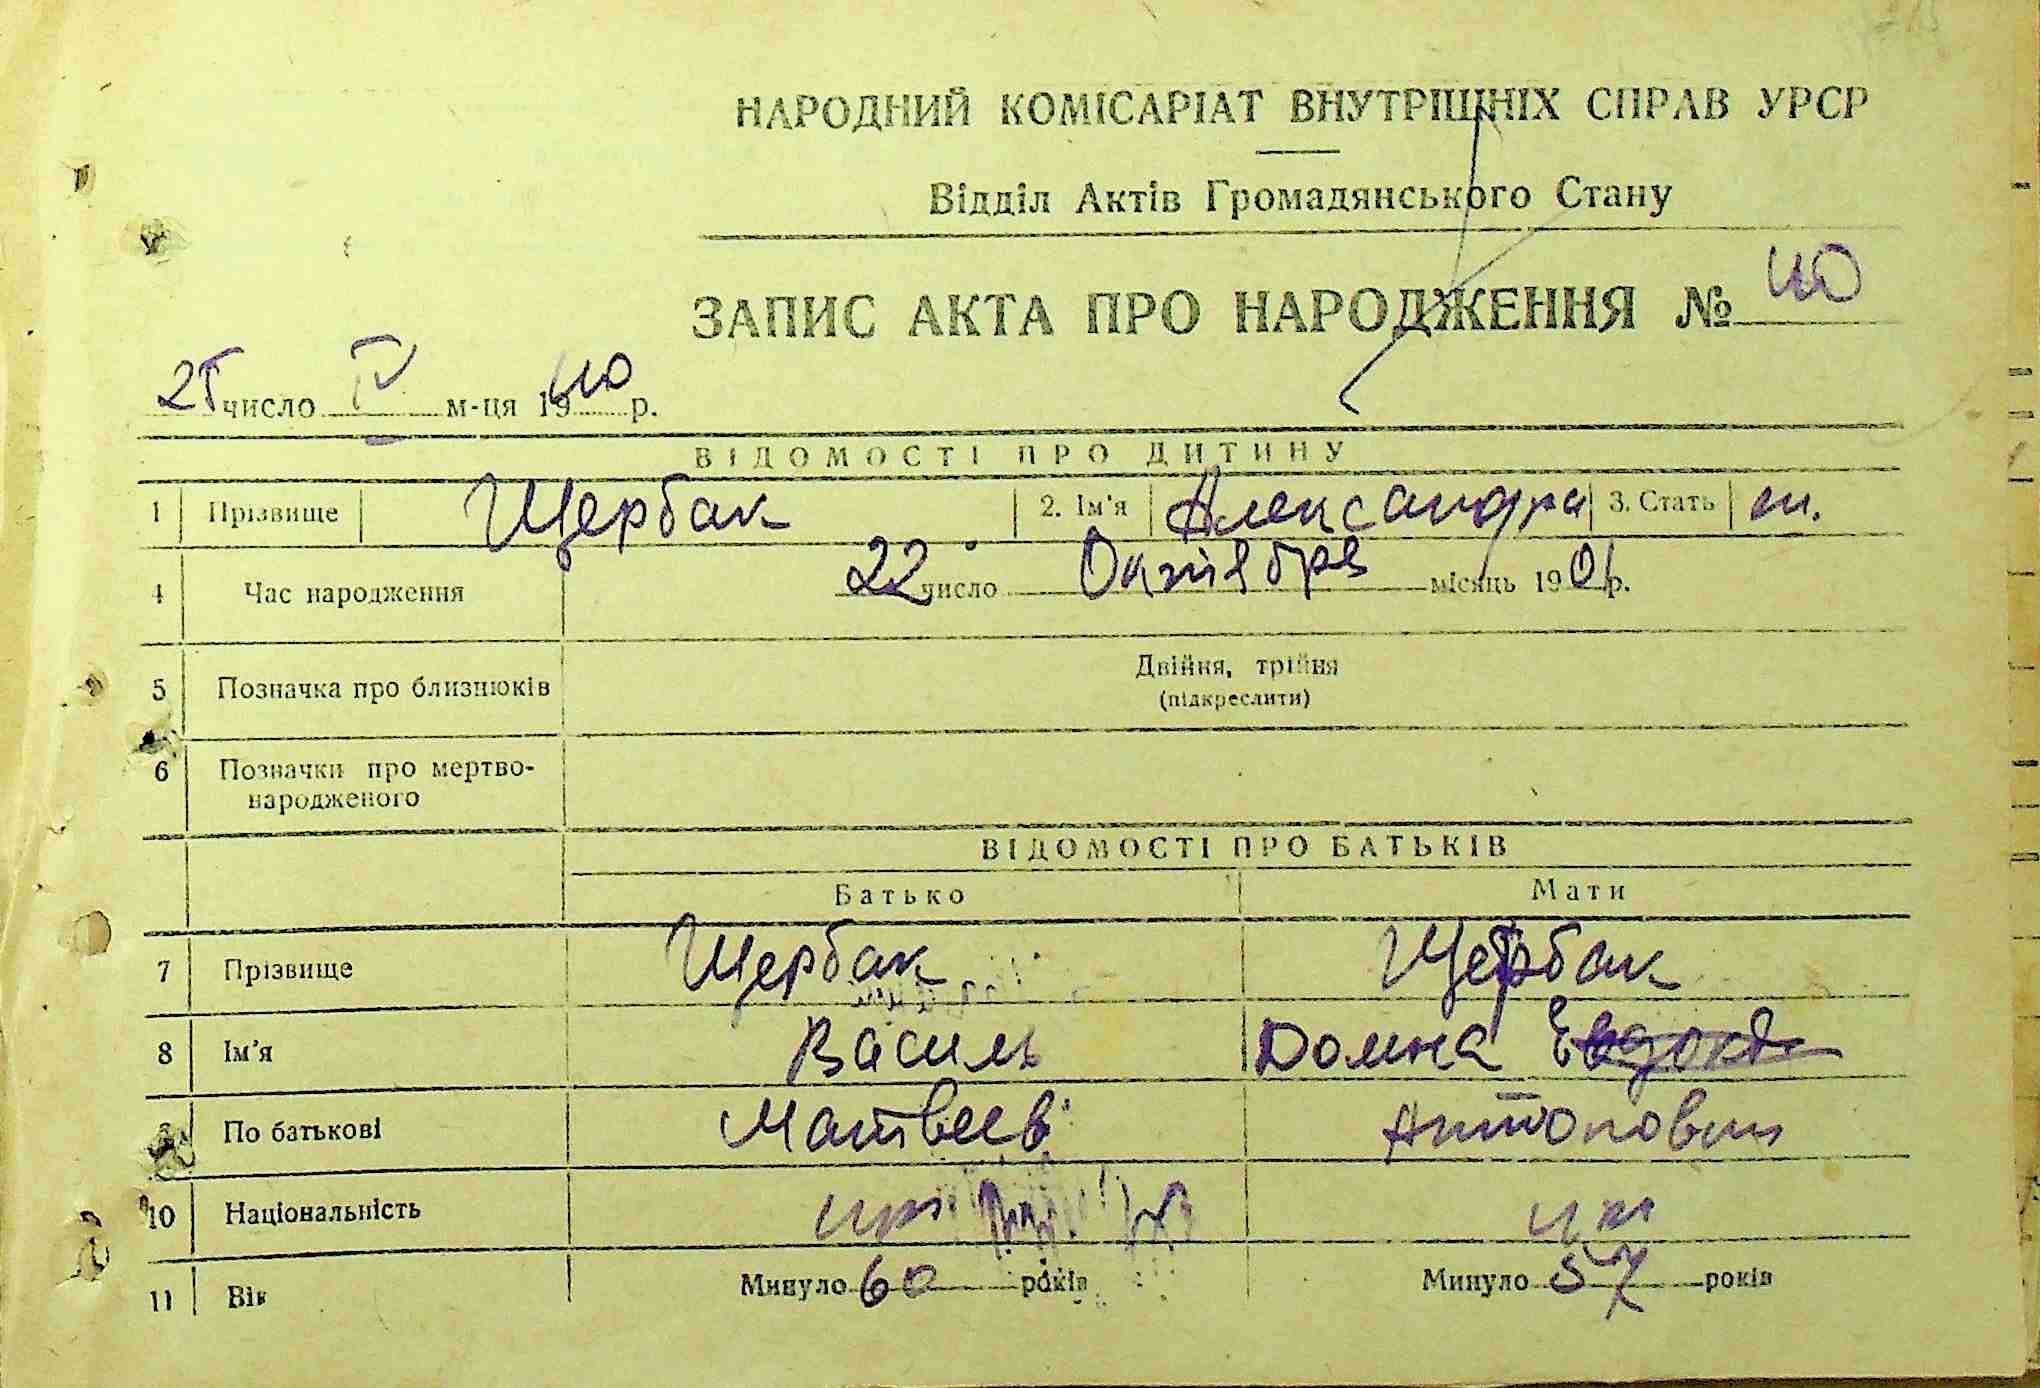 НАРОДНИЙ КОМІСАРІАТ ВНУТРІШНІХ СПРАВ УРСР
Відділ Актів Громадянського Стану
ЗАПИС АКТА ПРО НАРОДЖЕННЯ № 40
25 число IV м-ця 1940 р.
ВІДОМОСТІ ПРО ДИТИНУ
1 Прізвище Щербак 2. Ім'я Александра 3. Стать
4 Час народження 22 число Октября місяць 1901 р.
5 Позначка про близнюків Двійня, трійня
(підкреслити)
6 Позначки про мертво-
народженого
ВІДОМОСТІ ПРО БАТЬКІВ
Батько Мати
7 Прізвище Щербак Щербак
8 Ім'я Василь Домна Евдокія
9 По батькові Матвеев Антоновн
10 Національність укр ук
11 Вік Минуло 60 років Минуло 57 років